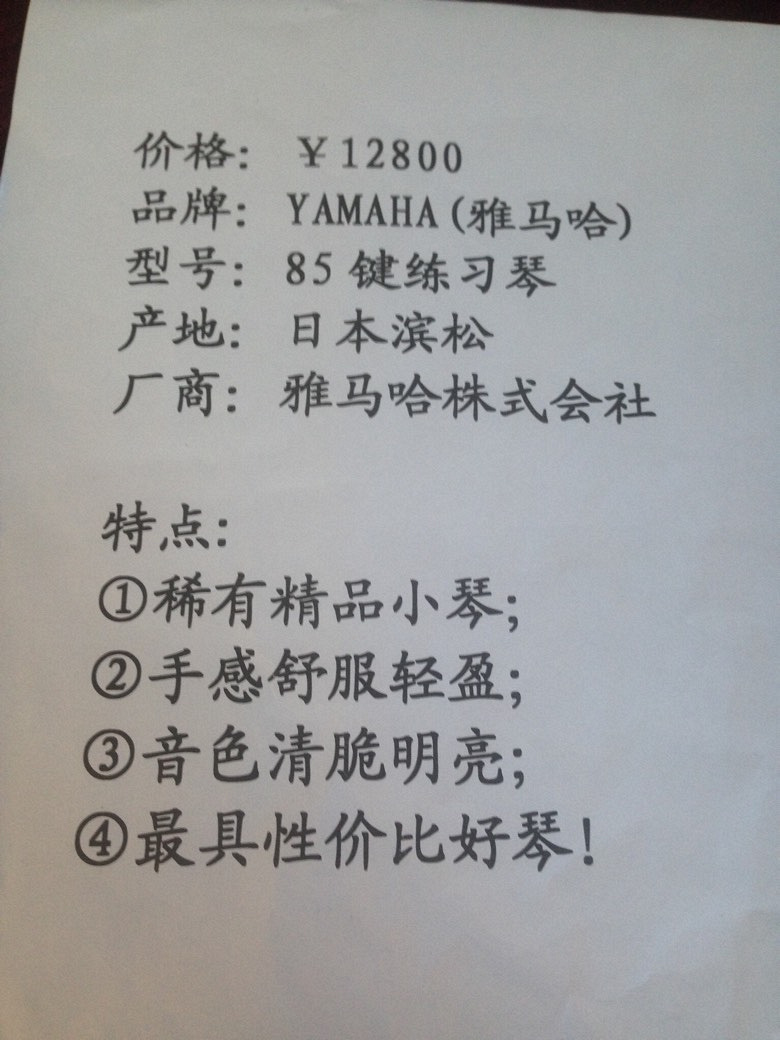 价格：￥12800
品牌：YAMAHA(雅马哈)
型号：85键练习琴
产地：日本滨松
厂商：雅马哈株式会社
特点：
①稀有精品小琴；
②手感舒服轻盈；
③音色清脆明亮；
④最具性价比好琴！